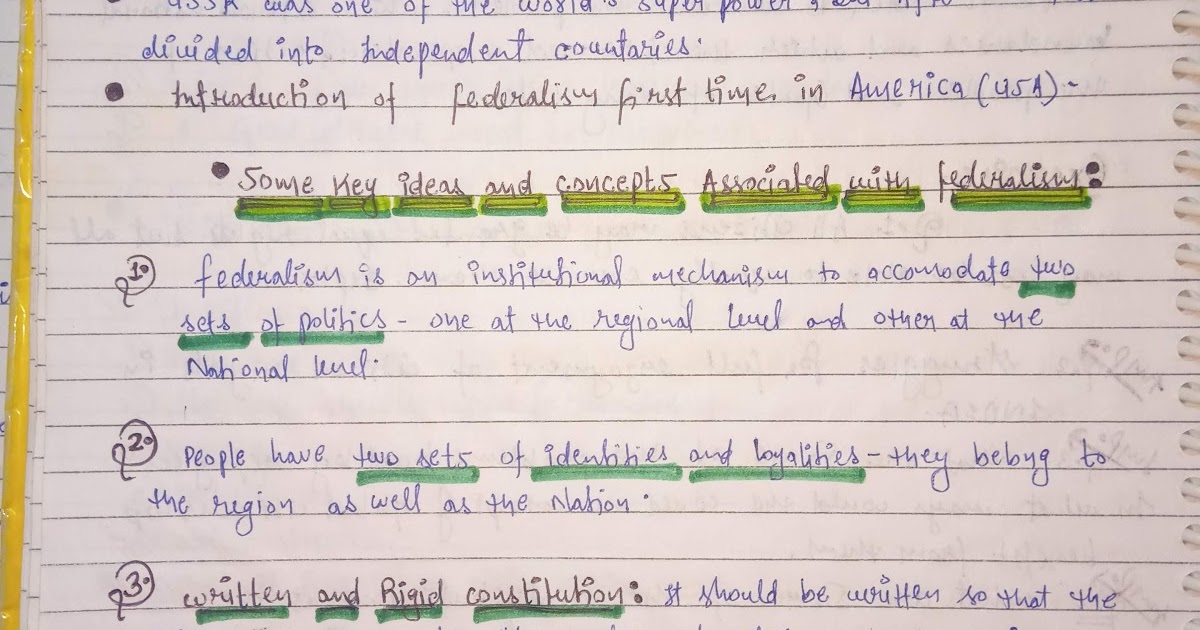 USSR was one of the world's super power
divided into Independent countaries.
• Introduction of federalism first time in America (USA) -
• Some Key ideas and concepts Associated with federalism:
1. federalism is an institutional mechanism to accomodate two
sets of politics - one at the regional level and other at the
National level.
2. People have two sets of identities and loyalities - they belong to
the region as well as the Nation.
3. written and Rigid constitution: It should be written so that the